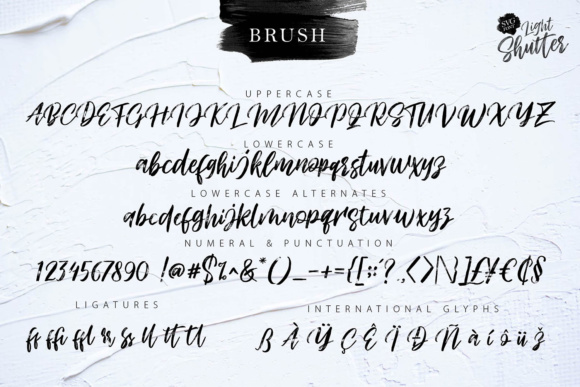 BRUSH
SVG FONT
Light
Shutter
UPPERCASE
ABCDEFGHIJKLMNOPQRSTUVWXYZ
LOWERCASE
abcdefghijklmnopqrstuvwxyz
LOWERCASE ALTERNATES
abcdefghijklmnopqrstuvwxyz
NUMERAL & PUNCTUATION
1234567890 !@#$%^&*()_-+={[:;'?.,<>|\}]£¥€₵§
LIGATURES
ff ffi ffl rr ss ll tt tl
INTERNATIONAL GLYPHS
ß À Ÿ Ç Ê Ï Ð Ñ à í ô ü ž